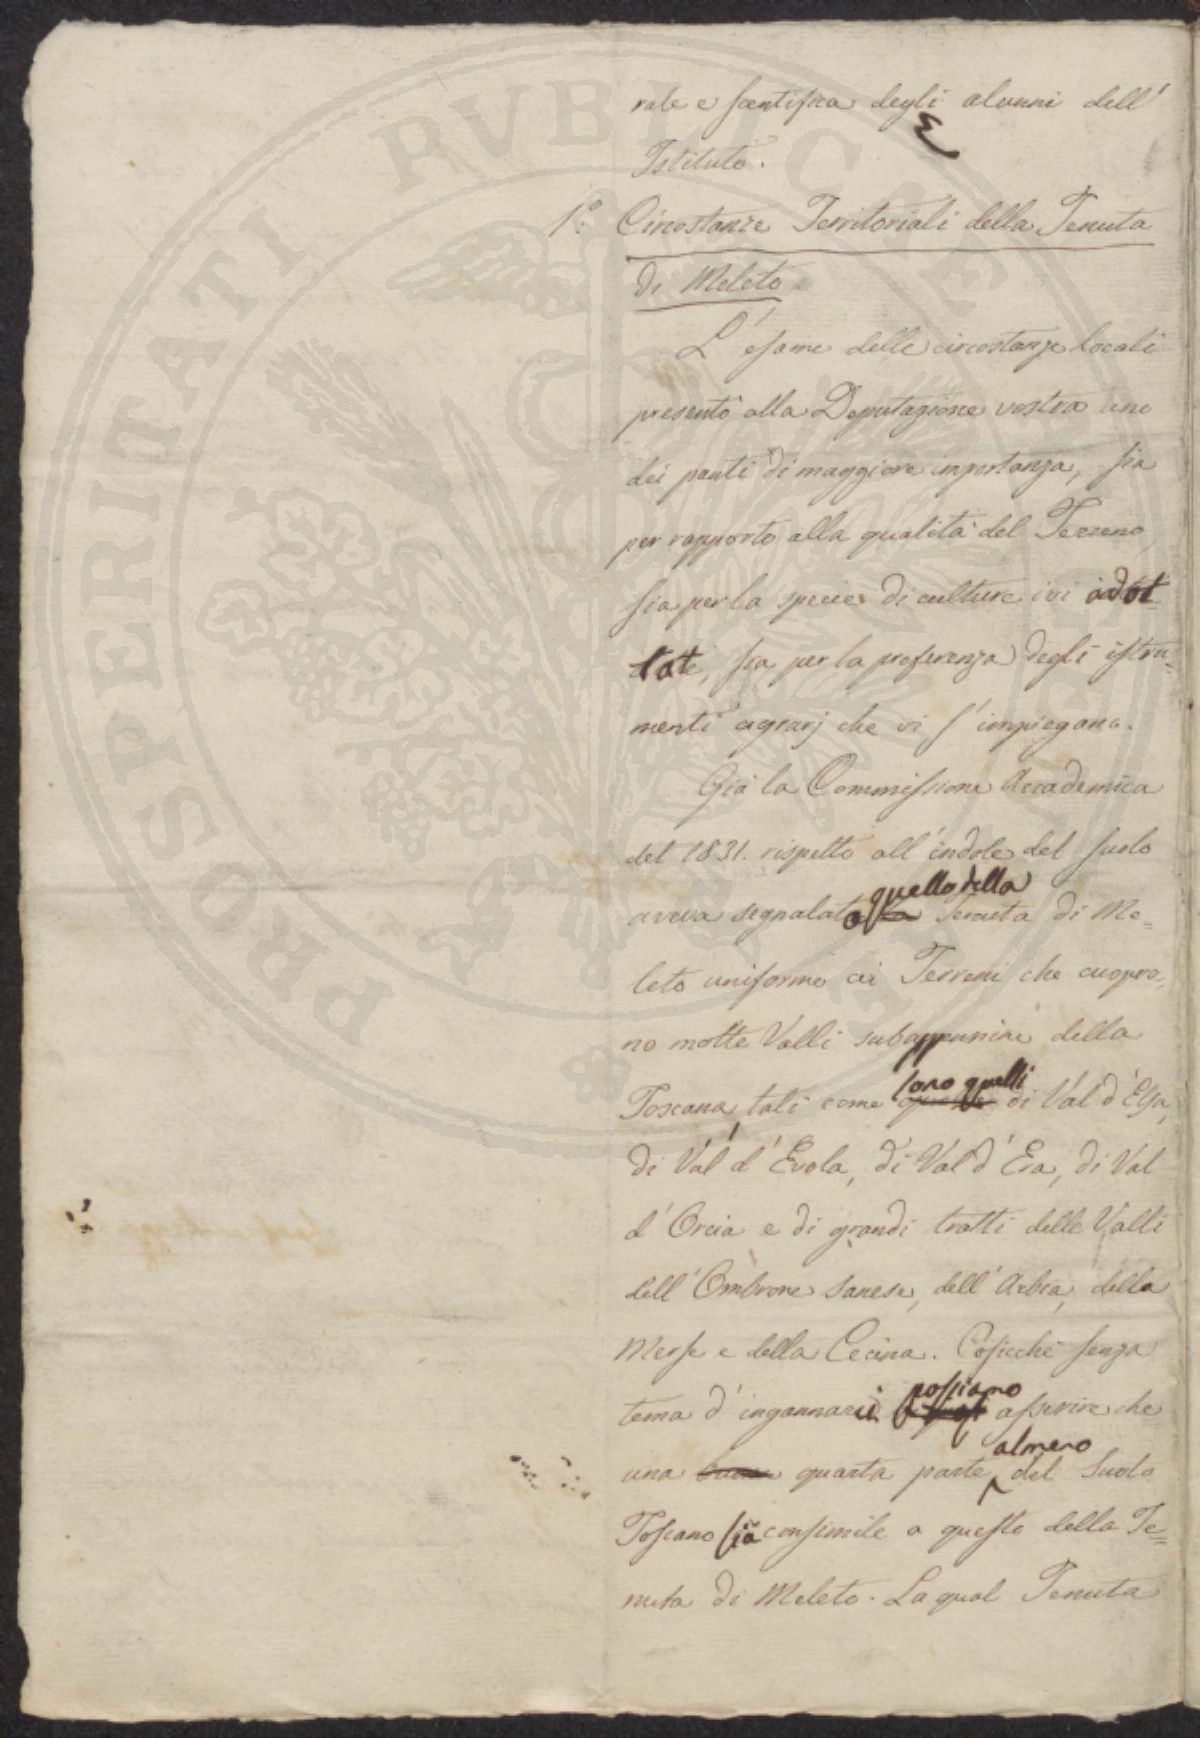 rale e scentifica degli alunni dell'
Istituto.
1.° Circostanze Territoriali della Tenuta
di Meleto
L'esame delle circostanze locali
presentò alla Deputazione vostra uno
dei punti di maggiore importanza, sia
per rapporto alla qualità del Terreno,
sia per la specie di culture ivi adot
tate, sia per la preferenza degli istru=
menti agrarj che vi s'impiegano.
Già la Commissione Accademica
del 1831. rispetto all'indole del suolo
quello della
aveva segnalato la Tenuta di Me=
leto uniforme ai Terreni che cuopro=
no molte Valli subappennine della
sono quelli
Toscana, tali come quelle di Val d'Elsa,
di Val d'Evola, di Val d'Era, di Val
d'Orcia e di grandi tratti delle Valli
dell'Ombrone sanese, dell'Arbia, della
Merse e della Cecina. Cosicchè senza
possiamo
tema d'ingannarci asserire che
almeno
una buona quarta parte del Suolo
Toscano sia consimile a questo della Te=
nuta di Meleto. La qual Tenuta
PROSPERITATI PVBLICAE